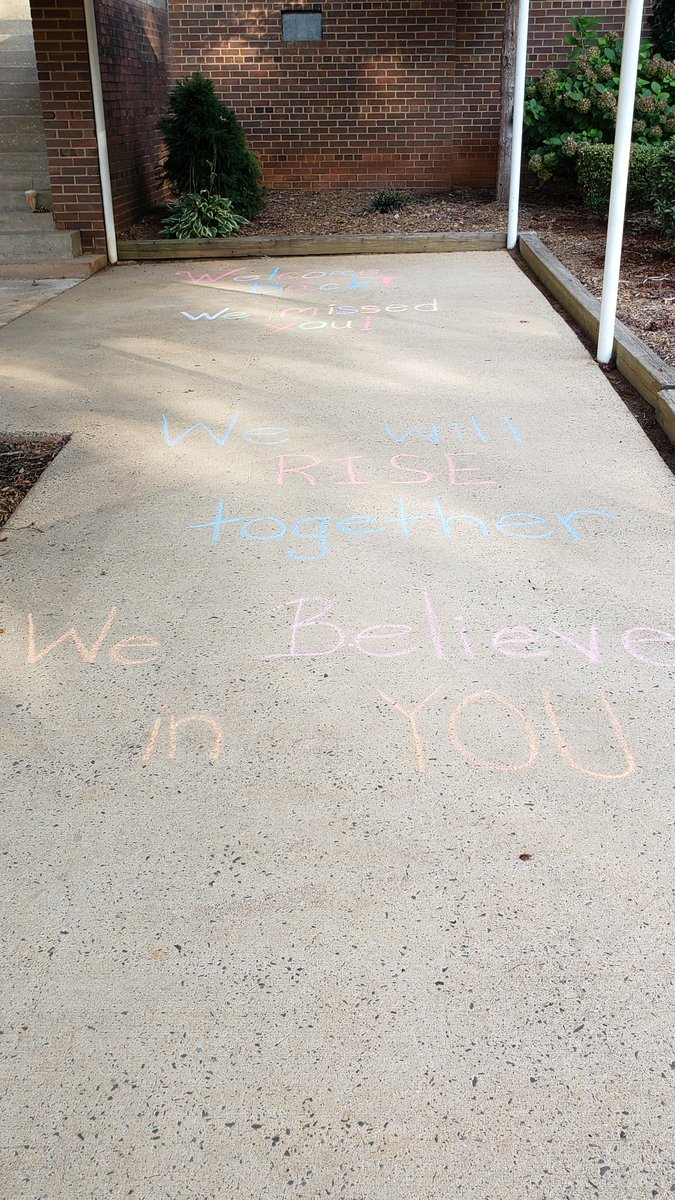 Welcome
Back!
We missed
you!
We will
RISE
together
We Believe
in YOU